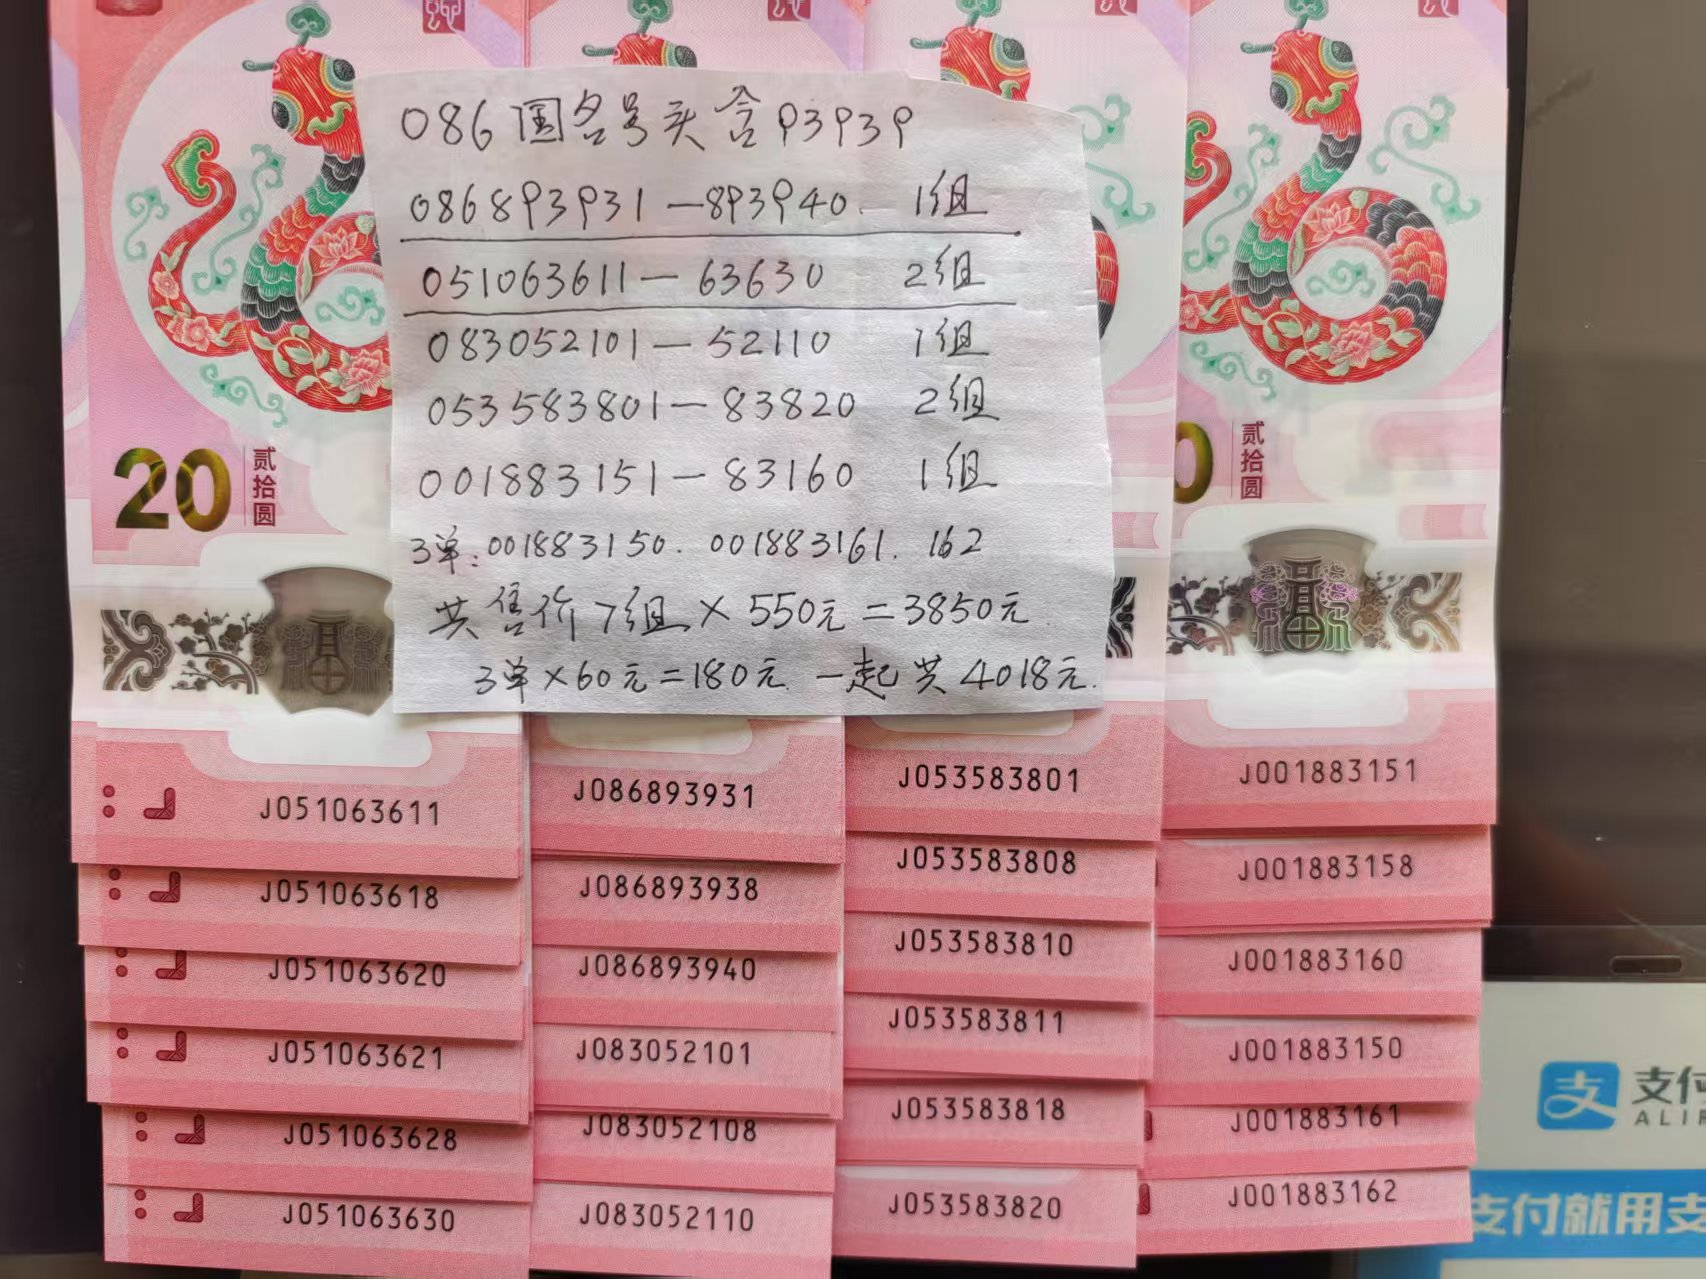 086国名号头含93939
086893931—893940 1组
051063611—63630 2组
083052101—52110 1组
053583801—83820 2组
001883151—83160 1组
3单:001883150. 001883161. 162
共售价7组×550元=3850元
3单×60元=180元 一起共4018元.
20
贰拾圆
0
贰拾圆
J051063611
J051063618
J051063620
J051063621
J051063628
J051063630
J086893931
J086893938
J086893940
J083052101
J083052108
J083052110
J053583801
J053583808
J053583810
J053583811
J053583818
J053583820
J001883151
J001883158
J001883160
J001883150
J001883161
J001883162
支 支付
ALI
支付就用支